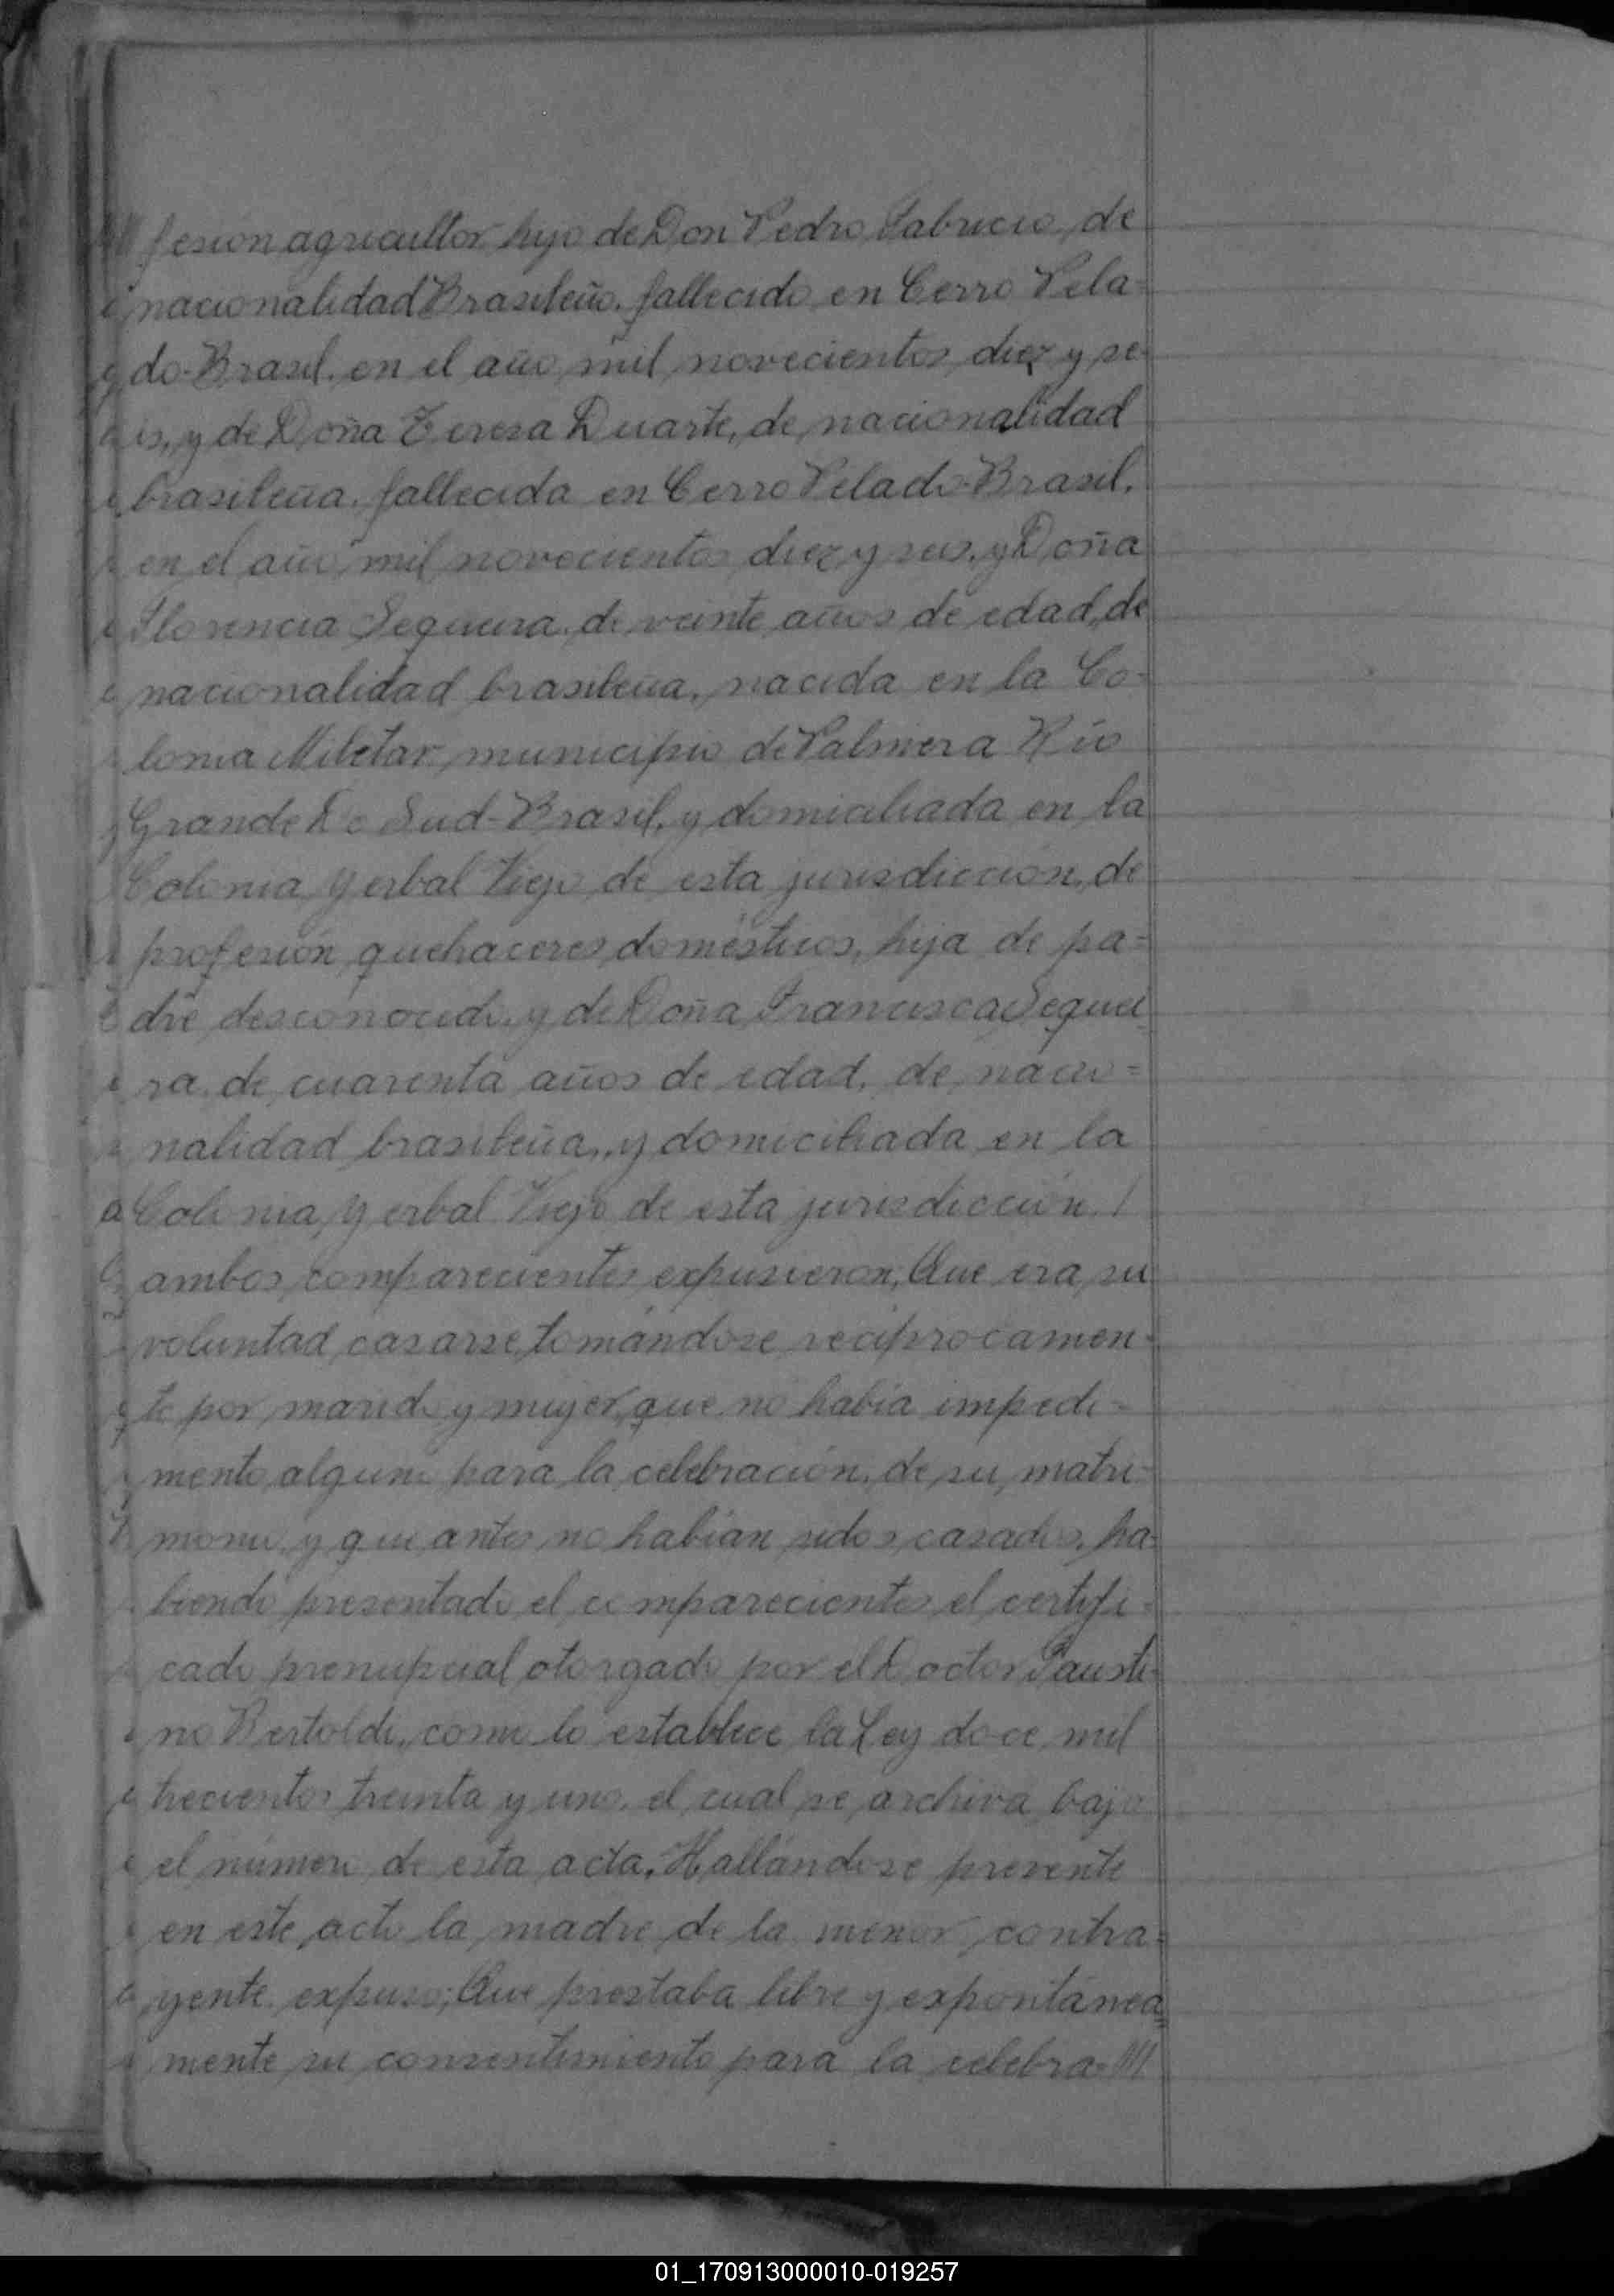 //// fesión agricultor, hijo de Don Pedro Fabricio, de
nacionalidad Brasileño, fallecido en Cerro Pela-
do-Brasil, en el año mil novecientos diez y se-
is, y de Doña Teresa Duarte, de nacionalidad
brasileña, fallecida en Cerro Pelado-Brasil,
en el año mil novecientos diez y seis, y Doña
Florencia Sequeira, de veinte años de edad, de
nacionalidad brasileña, nacida en la Co-
lonia Militar, municipio de Palmera Río
Grande Do Sud-Brasil, y domiciliada en la
Colonia Yerbal Viejo de esta jurisdicción, de
profesión quehaceres domésticos, hija de pa=
dre desconocido, y de Doña Francisca Sequei
ra, de cuarenta años de edad, de nacio=
nalidad brasileña, y domiciliada en la
Colonia, Yerbal Viejo de esta jurisdicción. /
ambos comparecientes expusieron; Que era su
voluntad casarse, tomándose recíprocamen-
te por marido y mujer, que no había impedi=
mento alguno para la celebración, de su, matri-
monio, y que antes no habían sidos casados, ha-
biendo presentado el comparecientes el certifi-
cado prenupcial otorgado por el Doctor Fausti-
no Bertoldi, como lo establece la Ley doce mil
trecientos treinta y uno, el cual se archiva bajo
el número de esta acta. Hallándose presente
en este acto la madre de la menor contra=
yente expuso; Que prestaba libre y expontánea=
mente su consentimiento para la celebra- ////
01_170913000010-019257